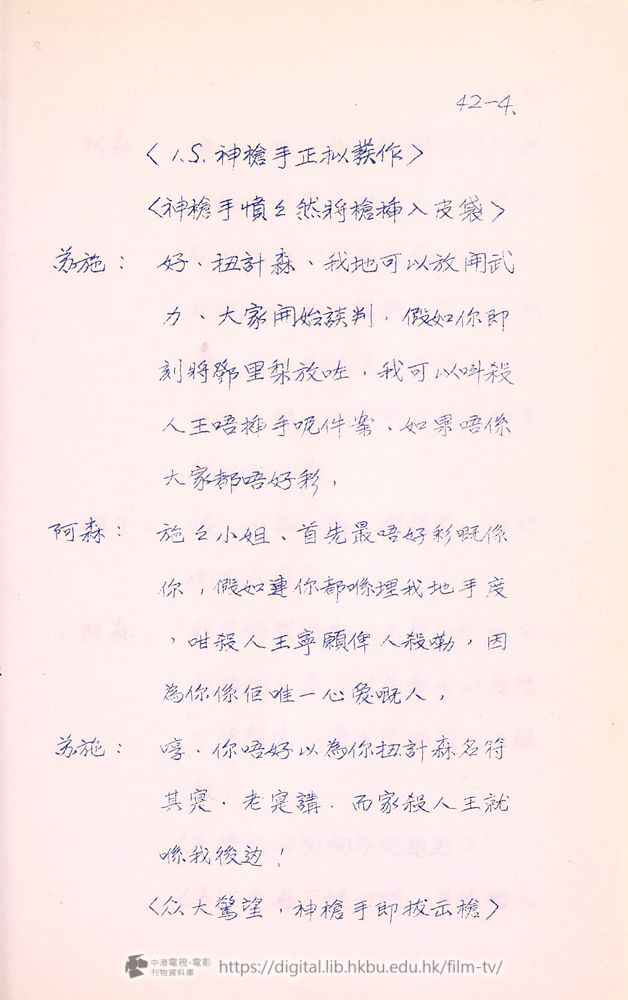 42-4.
〈I.S. 神槍手正拟發作〉
〈神槍手憤々然將槍揷入皮袋〉
苏施： 好、扭計森、我地可以放開武
力、大家開始談判，假如你即
刻將鄧里梨放咗，我可以叫殺
人王唔揷手呢件案、如果唔係
大家都唔好彩，
阿森： 施々小姐、首先最唔好彩嘅係
你，假如連你都喺埋我地手度
，咁殺人王寧願俾人殺嘞，因
為你係佢唯一心愛嘅人，
苏施： 哼、你唔好以為你扭計森名符
其寔．老寔講．而家殺人王就
喺我後边！
〈众大驚望，神槍手即拔出槍〉
中港電視·電影
刊物資料庫
https://digital.lib.hkbu.edu.hk/film-tv/